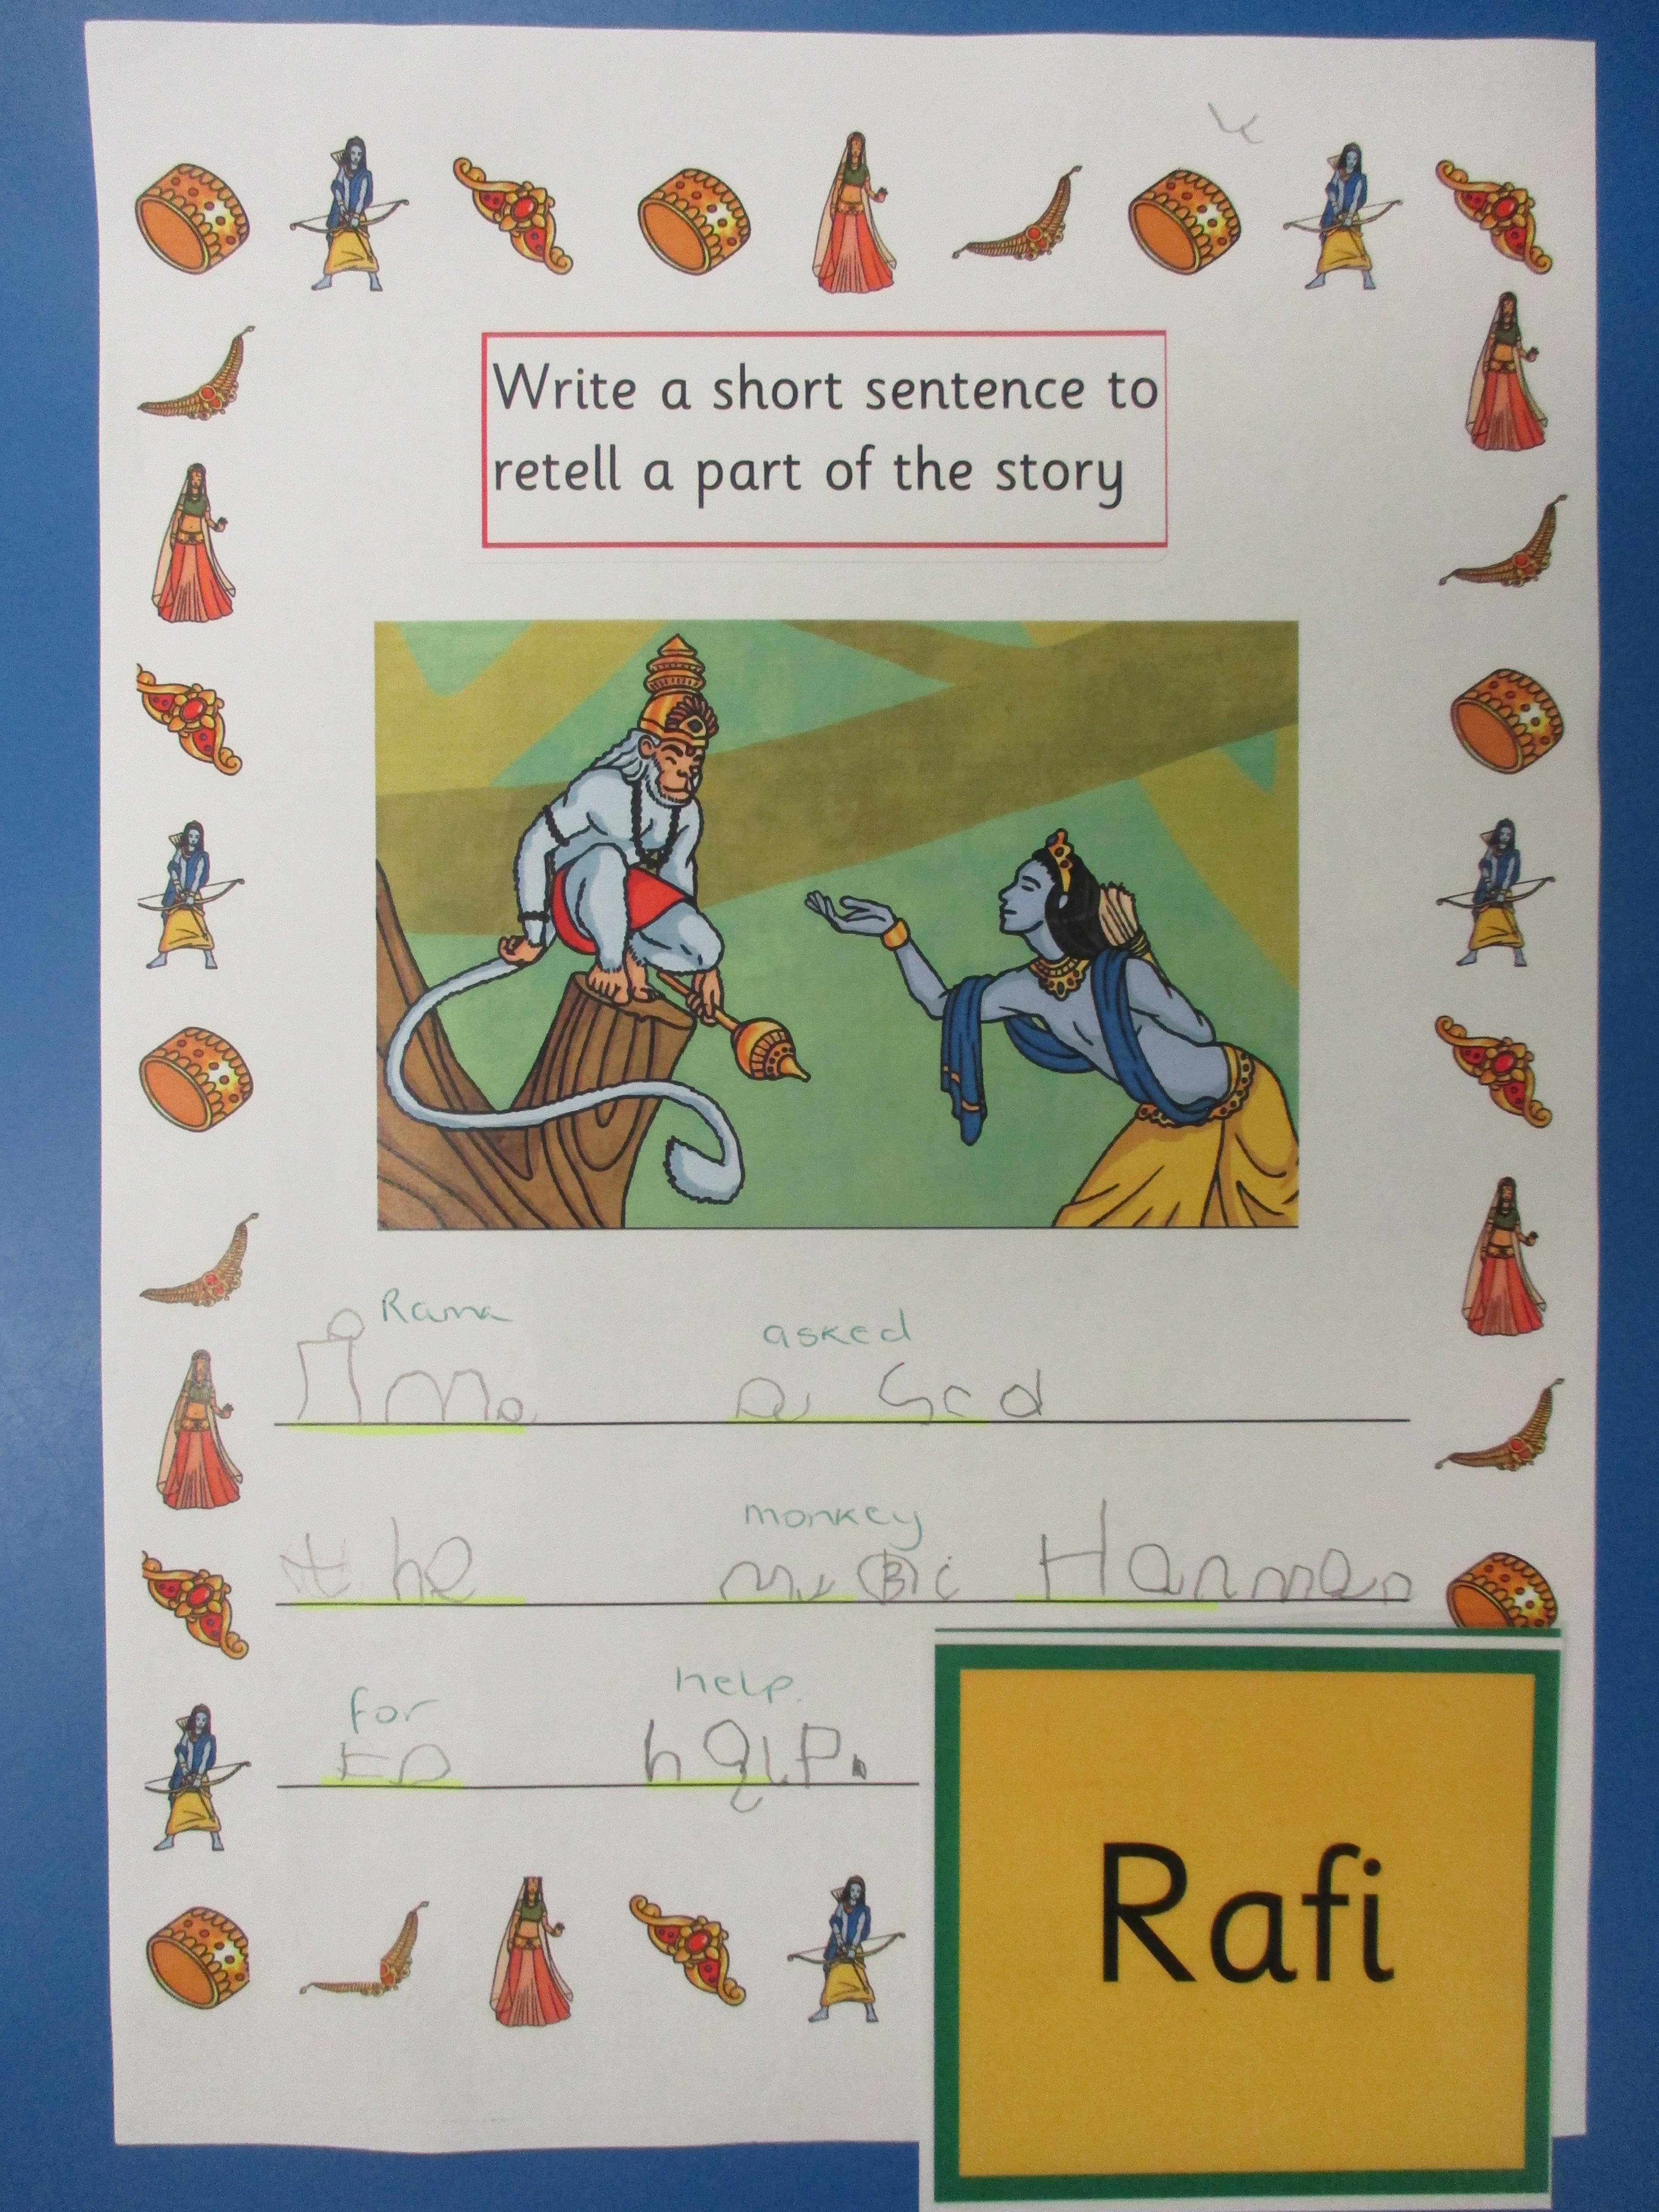 Write a short sentence to
retell a part of the story
Rama
asked
monkey
the
Hanman
for
help.
help.
Rafi